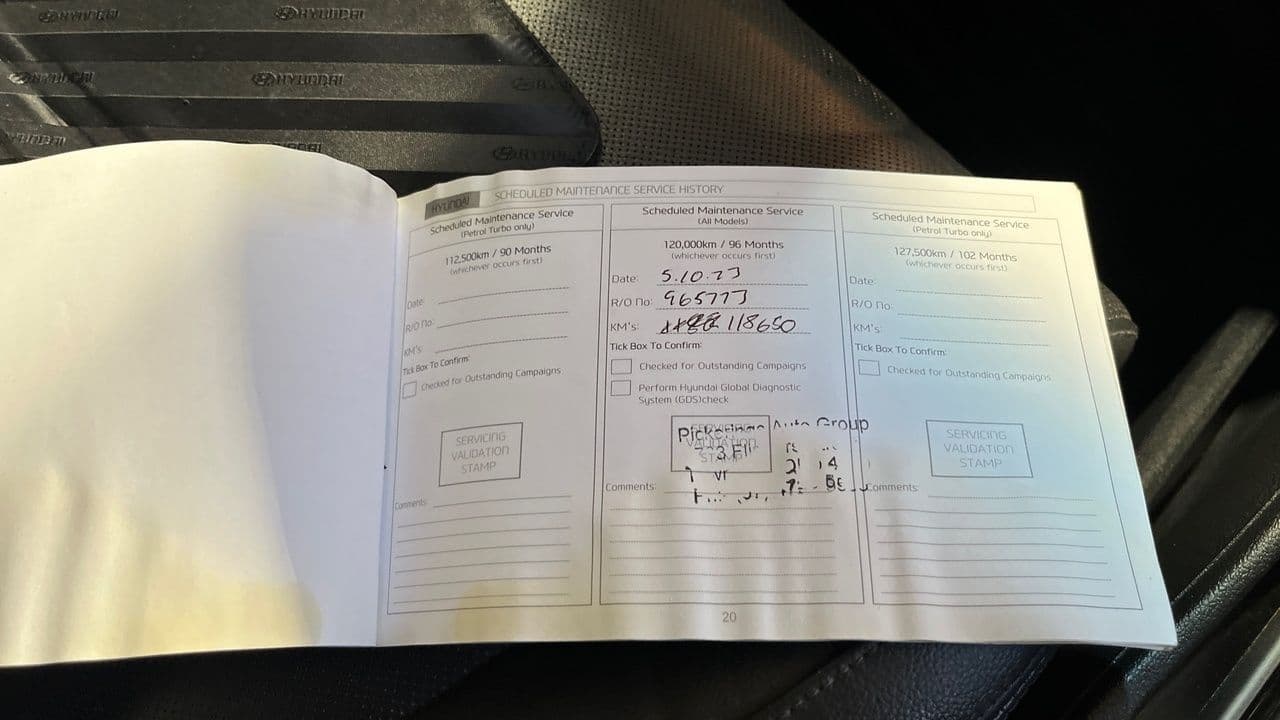 HYUNDAI HYUNDAI
HYUNDAI HYUNDAI
HYUNDAI HYUNDAI
HYUNDAI SCHEDULED MAINTENANCE SERVICE HISTORY
Scheduled Maintenance Service
(Petrol Turbo only)
112,500km / 90 Months
(whichever occurs first)
Date:
R/O No:
KM's:
Tick Box To Confirm:
Checked for Outstanding Campaigns
SERVICING
VALIDATION
STAMP
Comments:
Scheduled Maintenance Service
(All Models)
120,000km / 96 Months
(whichever occurs first)
Date: 5.10.23
R/O No: 965773
KM's: 118650
Tick Box To Confirm:
Checked for Outstanding Campaigns
Perform Hyundai Global Diagnostic
System (GDS)check
SERVICING
VALIDATION
STAMP
Auto Group
Comments:
Scheduled Maintenance Service
(Petrol Turbo only)
127,500km / 102 Months
(whichever occurs first)
Date:
R/O No:
KM's:
Tick Box To Confirm:
Checked for Outstanding Campaigns
SERVICING
VALIDATION
STAMP
Comments:
20